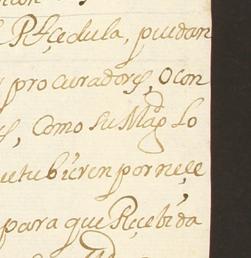 Rl çedula, puedan
procuradores, o con
Como Su Magd lo
tubieren por neçe
para que Reçebida